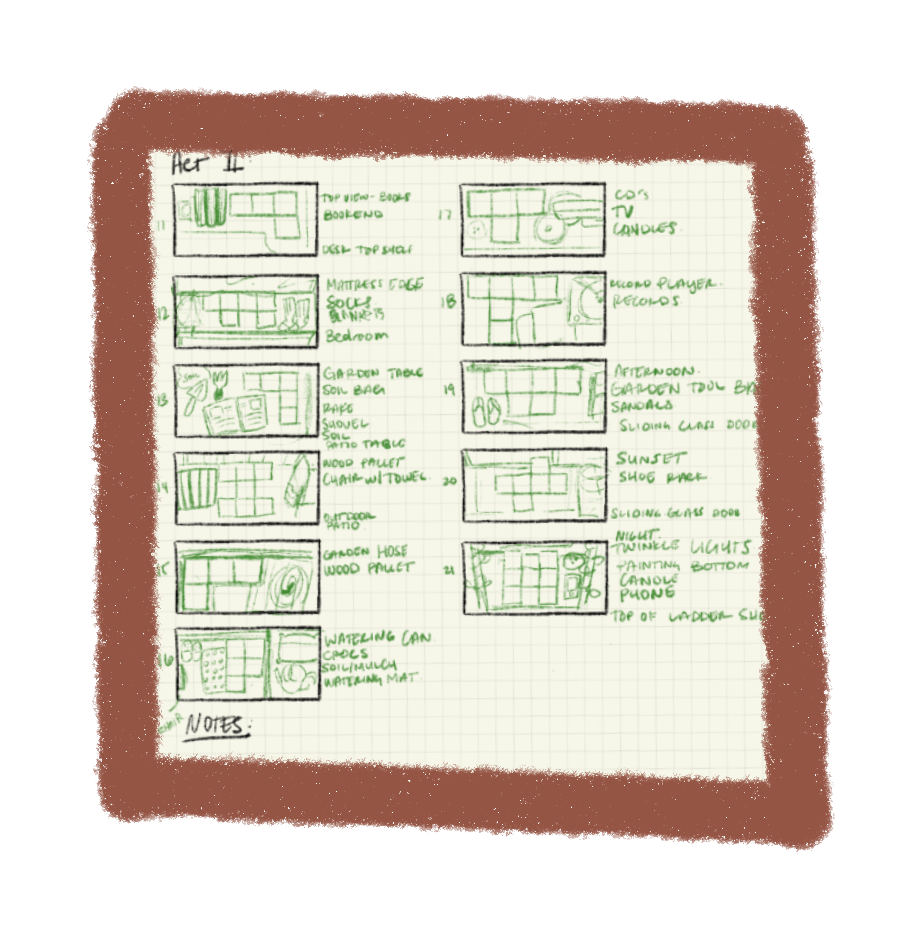 Act II
11
TOP VIEW - BOOKS
BOOKEND
DESK TOP SHELF
12
MATTRESS EDGE
SOCKS
BLANKETS
Bedroom
13
SOIL
GARDEN TABLE
SOIL BAG
RAKE
SHOVEL
SOIL
PATIO TABLE
14
WOOD PALLET
CHAIR W/TOWEL
OUTDOOR
PATIO
15
GARDEN HOSE
WOOD PALLET
16
WATERING CAN
CROCS
SOIL/MULCH
WATERING MAT
CHAIR
NOTES:
17
CD's
TV
CANDLES
18
RECORD PLAYER
RECORDS
19
AFTERNOON
GARDEN TOOL BA
SANDALS
SLIDING GLASS DOOR
20
SUNSET
SHOE RACK
SLIDING GLASS DOOR
21
NIGHT
TWINKLE LIGHTS
PAINTING BOTTOM
CANDLE
PHONE
TOP OF LADDER SHE